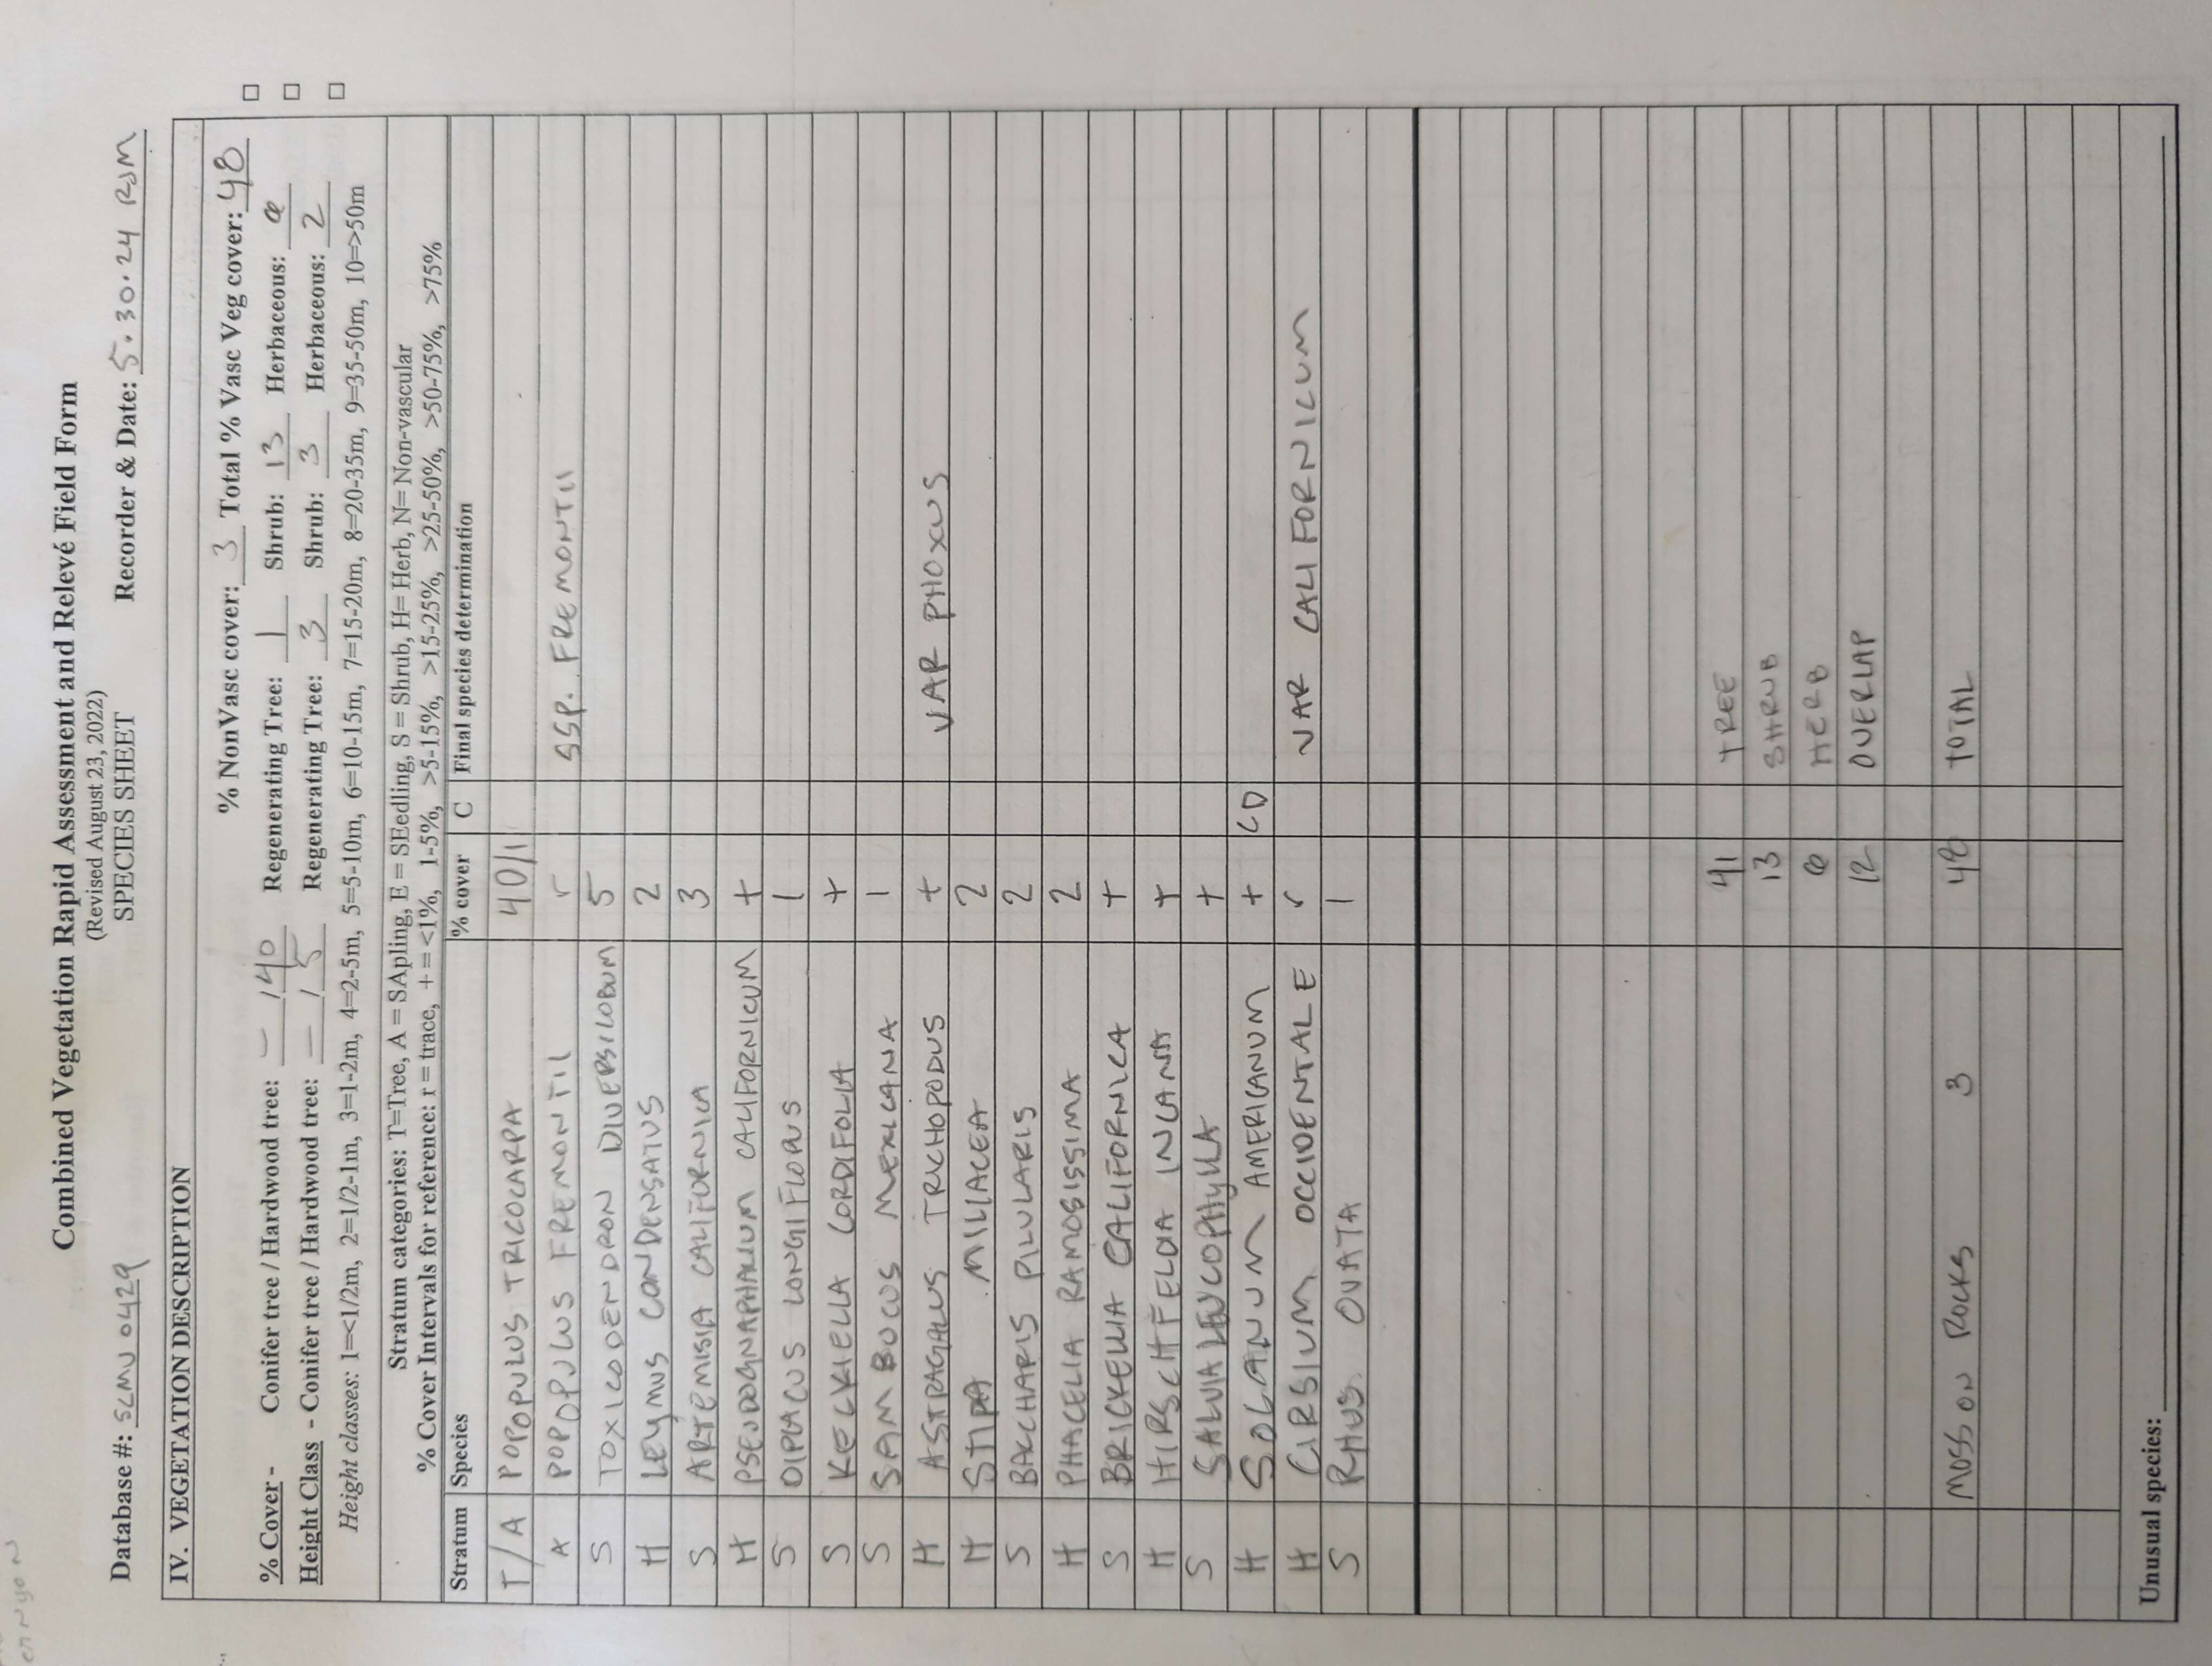 Combined Vegetation Rapid Assessment and Relevé Field Form
(Revised August 23, 2022)
SPECIES SHEET
Database #: SCMU 0429 Recorder & Date: 5.30.24 RJM
IV. VEGETATION DESCRIPTION
% NonVasc cover: 3 Total % Vasc Veg cover: 48
% Cover - Conifer tree / Hardwood tree: – / 40 Regenerating Tree: 1 Shrub: 13 Herbaceous:
Height Class - Conifer tree / Hardwood tree: – / 5 Regenerating Tree: 3 Shrub: 3 Herbaceous: 2
Height classes: 1=<1/2m, 2=1/2-1m, 3=1-2m, 4=2-5m, 5=5-10m, 6=10-15m, 7=15-20m, 8=20-35m, 9=35-50m, 10=>50m
Stratum categories: T=Tree, A = SApling, E = SEedling, S = Shrub, H= Herb, N= Non-vascular
% Cover Intervals for reference: r = trace, + = <1%, 1-5%, >5-15%, >15-25%, >25-50%, >50-75%, >75%
Stratum Species % cover C Final species determination
T/A POPOPULUS TRICOCARPA 40/1
A POPOPULUS FREMONTII r SSP. FREMONTII
S TOXICODENDRON DIVERSILOBUM 5
H LEYMUS CONDENSATUS 2
S ARTEMISIA CALIFORNICA 3
H PSEUDOGNAPHALIUM CALIFORNICUM +
S DIPLACUS LONGIFLORUS 1
S KECKIELLA CORDIFOLIA +
S SAMBUCUS MEXICANA 1
H ASTRAGALUS TRICHOPODUS + VAR PHOXUS
H STIPA MILIACEA 2
S BACCHARIS PILULARIS 2
H PHACELIA RAMOSISSIMA 2
S BRICKELLIA CALIFORNICA +
H HIRSCHFELDIA INCANA +
S SALVIA LEUCOPHYLLA +
H SOLANUM AMERICANUM + CD
H CIRSIUM OCCIDENTALE r VAR CALIFORNICUM
S RHUS OVATA 1
41 TREE
13 SHRUB
HERB
12 OVERLAP
MOSS ON ROCKS 3 48 TOTAL
Unusual species: